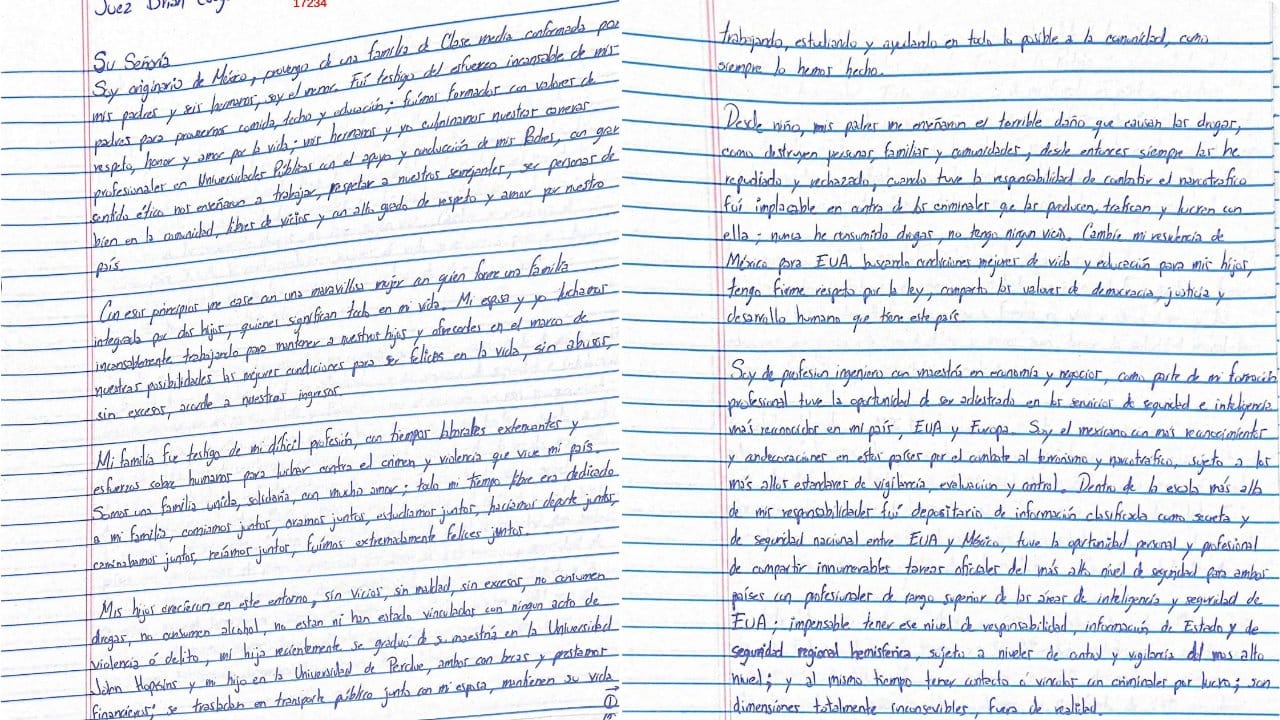 Juez Brian
17234
Su Señoría
Soy originario de México, provengo de una familia de clase media conformada por
mis padres y seis hermanos, soy el menor. Fui testigo del esfuerzo incansable de mis
padres para proveernos comida, techo y educación; fuimos formados con valores de
respeto, honor y amor por la vida; mis hermanos y yo culminamos nuestras carreras
profesionales en Universidades Públicas con el apoyo y conducción de mis Padres, con gran
sentido ético nos enseñaron a trabajar, respetar a nuestros semejantes, ser personas de
bien en la comunidad, libres de vicios y un alto grado de respeto y amor por nuestro
país.
Con esos principios me case con una maravillosa mujer con quien forme una familia
integrada por dos hijos, quienes significan todo en mi vida. Mi esposa y yo luchamos
incansablemente trabajando para mantener a nuestros hijos y ofrecerles en el marco de
nuestras posibilidades las mejores condiciones para ser felices en la vida, sin abusos,
sin excesos, acorde a nuestros ingresos.
Mi familia fue testigo de mi difícil profesión, con tiempos laborales extenuantes y
esfuerzos sobre humanos para luchar contra el crimen y violencia que vive mi país.
Somos una familia unida, solidaria, con mucho amor; todo mi tiempo libre era dedicado
a mi familia, comiamos juntos, oramos juntos, estudiamos juntos, haciamos deporte juntos,
caminabamos juntos, reíamos juntos, fuimos extremadamente felices juntos.
Mis hijos crecieron en este entorno, sin vicios, sin maldad, sin excesos, no consumen
drogas, no consumen alcohol, no estan ni han estado vinculados con ningun acto de
violencia ó delito, mi hija recientemente se graduó de su maestría en la Universidad
John Hopkins y mi hijo en la Universidad de Perdue, ambos con becas y prestamos
financieros; se trasladan en transporte público junto con mi esposa, mantienen su vida
1
trabajando, estudiando y ayudando en todo lo posible a la comunidad, como
siempre lo hemos hecho.
Desde niño, mis padres me enseñaron el terrible daño que causan las drogas,
como destruyen personas, familias y comunidades, desde entonces siempre las he
repudiado y rechazado, cuando tuve la responsabilidad de combatir el narcotrafico
fuí implacable en contra de los criminales que las producen, trafican y lucran con
ella; nunca he consumido drogas, no tengo ningun vicio. Cambie mi residencia de
México para EUA. buscando condiciones mejores de vida y educación para mis hijos,
tengo firme respeto por la ley, comparto los valores de democracia, justicia y
desarrollo humano que tiene este país.
Soy de profesion ingeniero con maestría en economía y negocios, como parte de mi formación
profesional tuve la oportunidad de ser adiestrado en los servicios de seguridad e inteligencia
más reconocidos en mi país, EUA y Europa. Soy el mexicano con más reconocimientos
y condecoraciones en estos países por el combate al terrorismo y narcotrafico, sujeto a los
más altos estandares de vigilancia, evaluacion y control. Dentro de la escala más alta
de mis responsabilidades fuí depositario de información clasificada como secreta y
de seguridad nacional entre EUA y México, tuve la oportunidad personal y profesional
de compartir innumerables tareas oficiales del más alto nivel de seguridad para ambos
países con profesionales de rango superior de las áreas de inteligencia y seguridad de
EUA; impensable tener ese nivel de responsabilidad, información de Estado y de
seguridad regional hemisferica, sujeto a niveles de control y vigilancia del mas alto
nivel; y al mismo tiempo tener contacto ó vinculos con criminales por lucro; son
dimensiones totalmente inconcevibles, fuera de realidad.